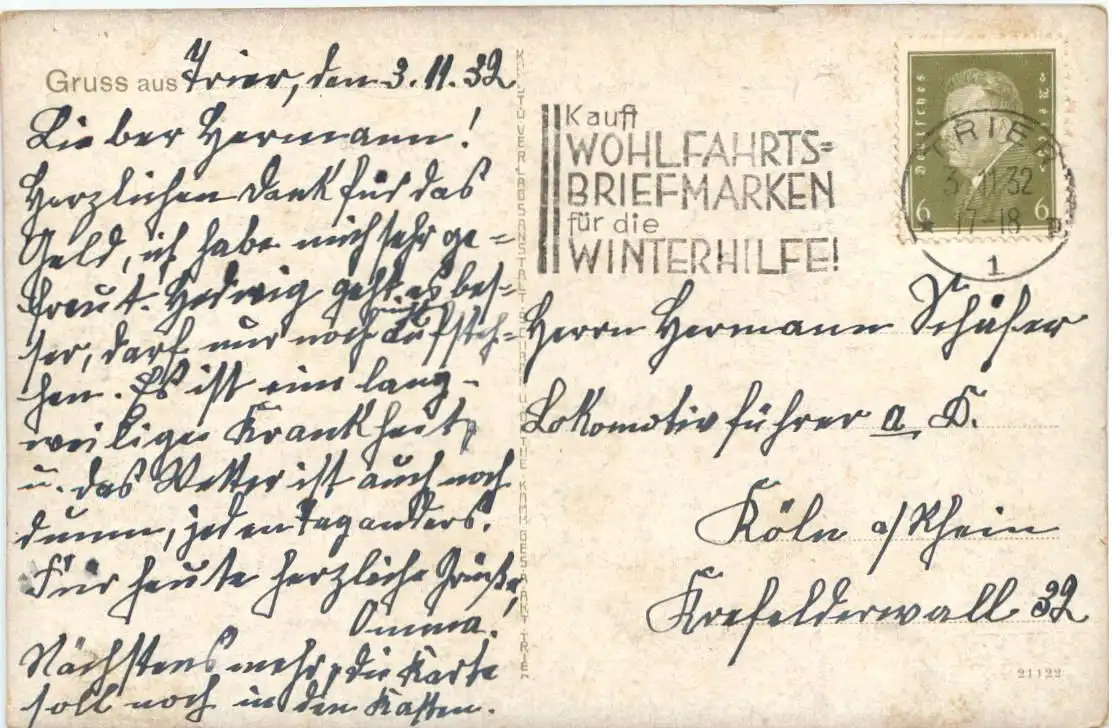 Gruss aus Trier, den 3.11.32
Lieber Hermann!
Herzlichen Dank für das
Geld, ich habe mich sehr ge=
freut. Hedwig geht es bes=
ser, darf nur noch nicht aufste-
hen. Es ist eine lang-
weilige Krankheit,
u. das Wetter ist auch noch
dumm, jeden Tag anders.
Für heute herzliche Grüße,
Omma.
Nächstens mehr, die Karte
soll noch in den Kasten.
Kauft
WOHLFAHRTS=
BRIEFMARKEN
für die
WINTERHILFE!
Deutsches Reich
6 6
TRIER
3.11.32
17-18
1
Herrn Hermann Schäfer
Lokomotivführer a. D.
Köln a/Rhein
Krefelderwall 32
21122